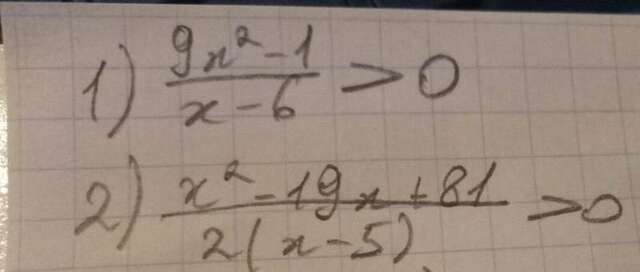 1) (9x² - 1)/(x - 6) > 0
2) (x² - 19x + 81)/(2(x - 5)) > 0